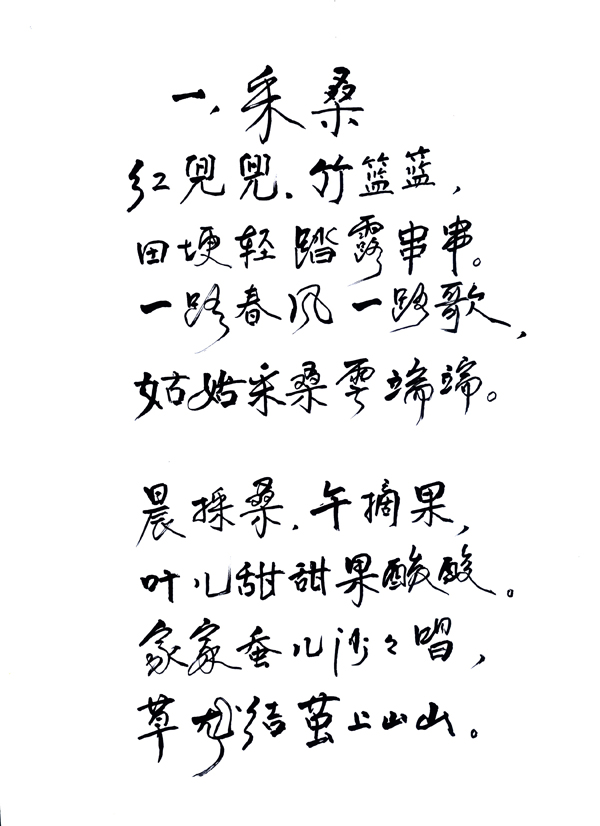 一、采桑
红兜兜、竹篮篮，
田埂轻踏露串串。
一路春风一路歌，
姑姑采桑雲端端。
晨採桑、午摘果，
叶儿甜甜果酸酸。
家家蚕儿沙々唱，
草龙结茧上山山。